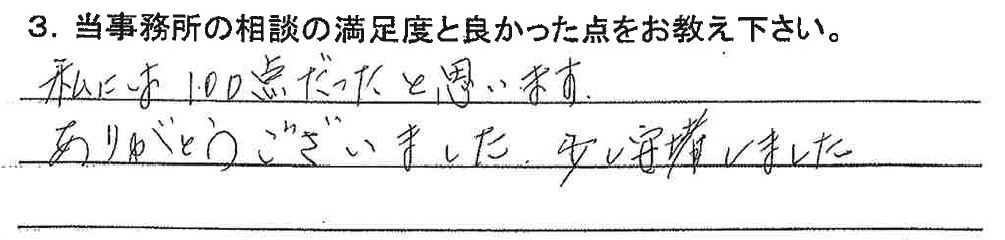 3. 当事務所の相談の満足度と良かった点をお教え下さい。
私には100点だったと思います.
ありがとうございました. 少し安堵しました